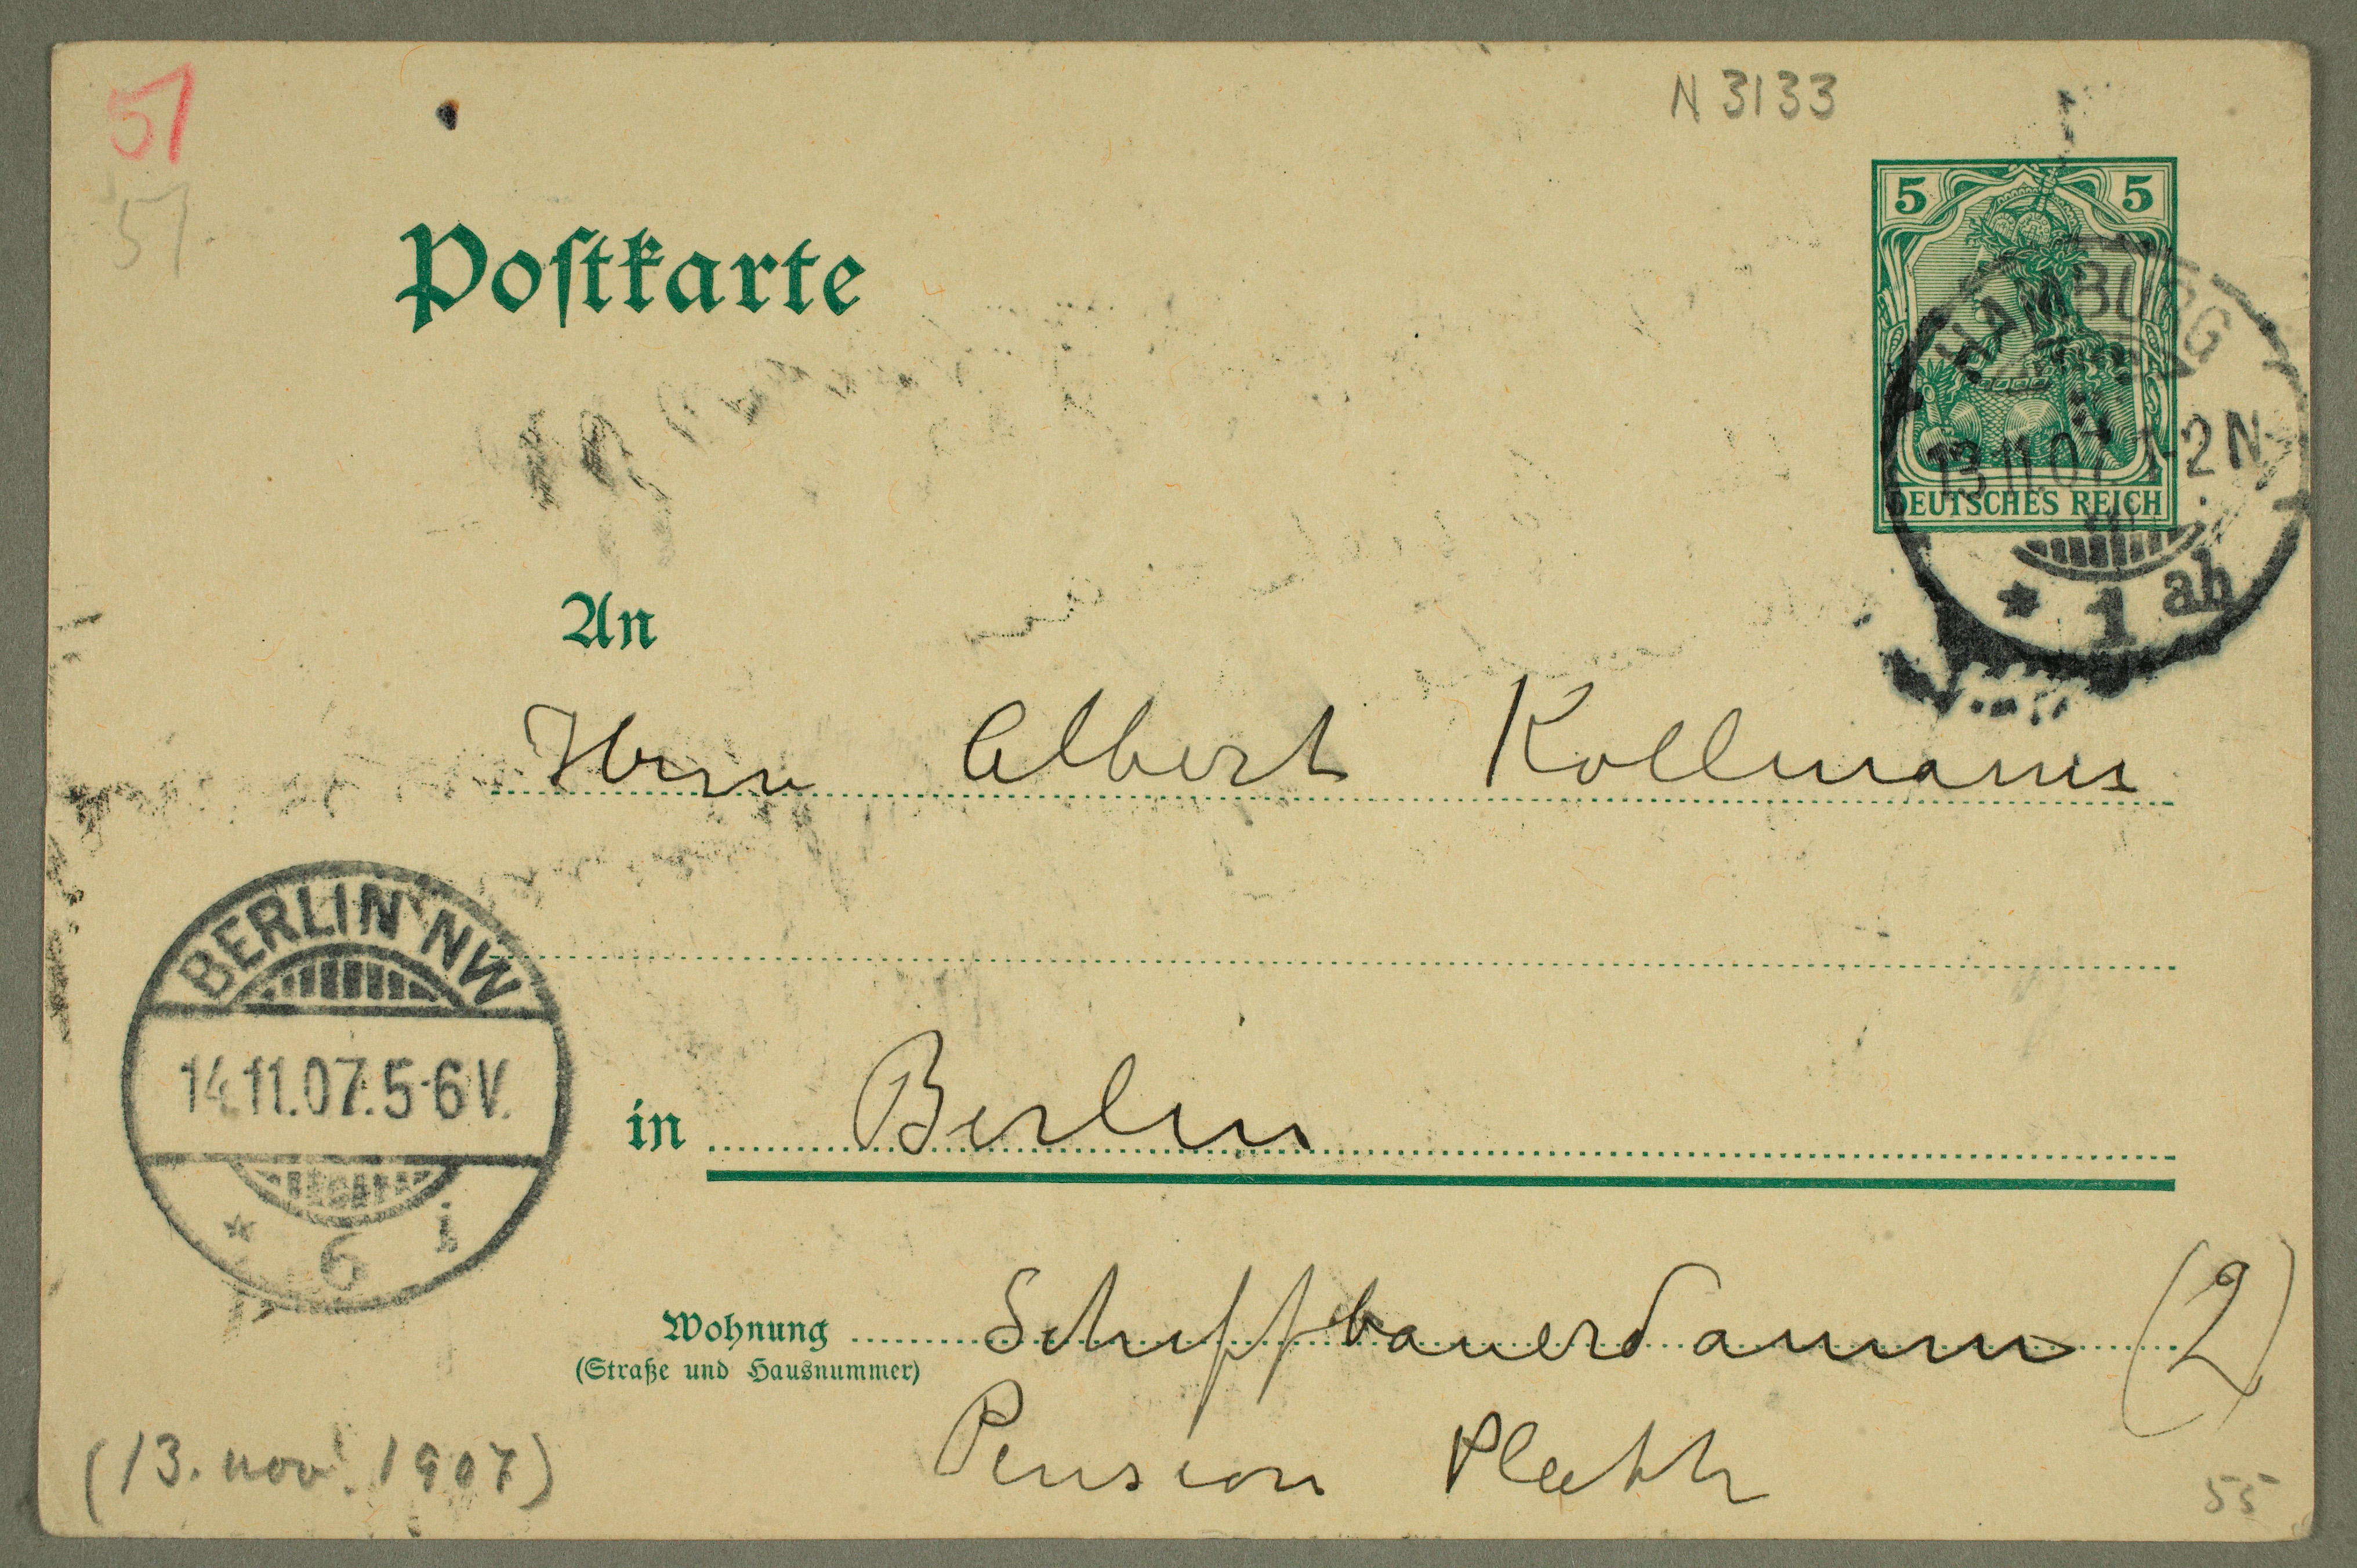 51
51
N 3133
Postkarte
5 5
DEUTSCHES REICH
HAMBURG
13.11.07. 1-2 N
* 1 ab
An
Herrn Albert Kollmann
BERLIN NW
14.11.07. 5-6 V.
* 6 i
in Berlin
Wohnung Schiffbauerdamm (2)
(Straße und Hausnummer)
Pension
(13. nov. 1907)
55